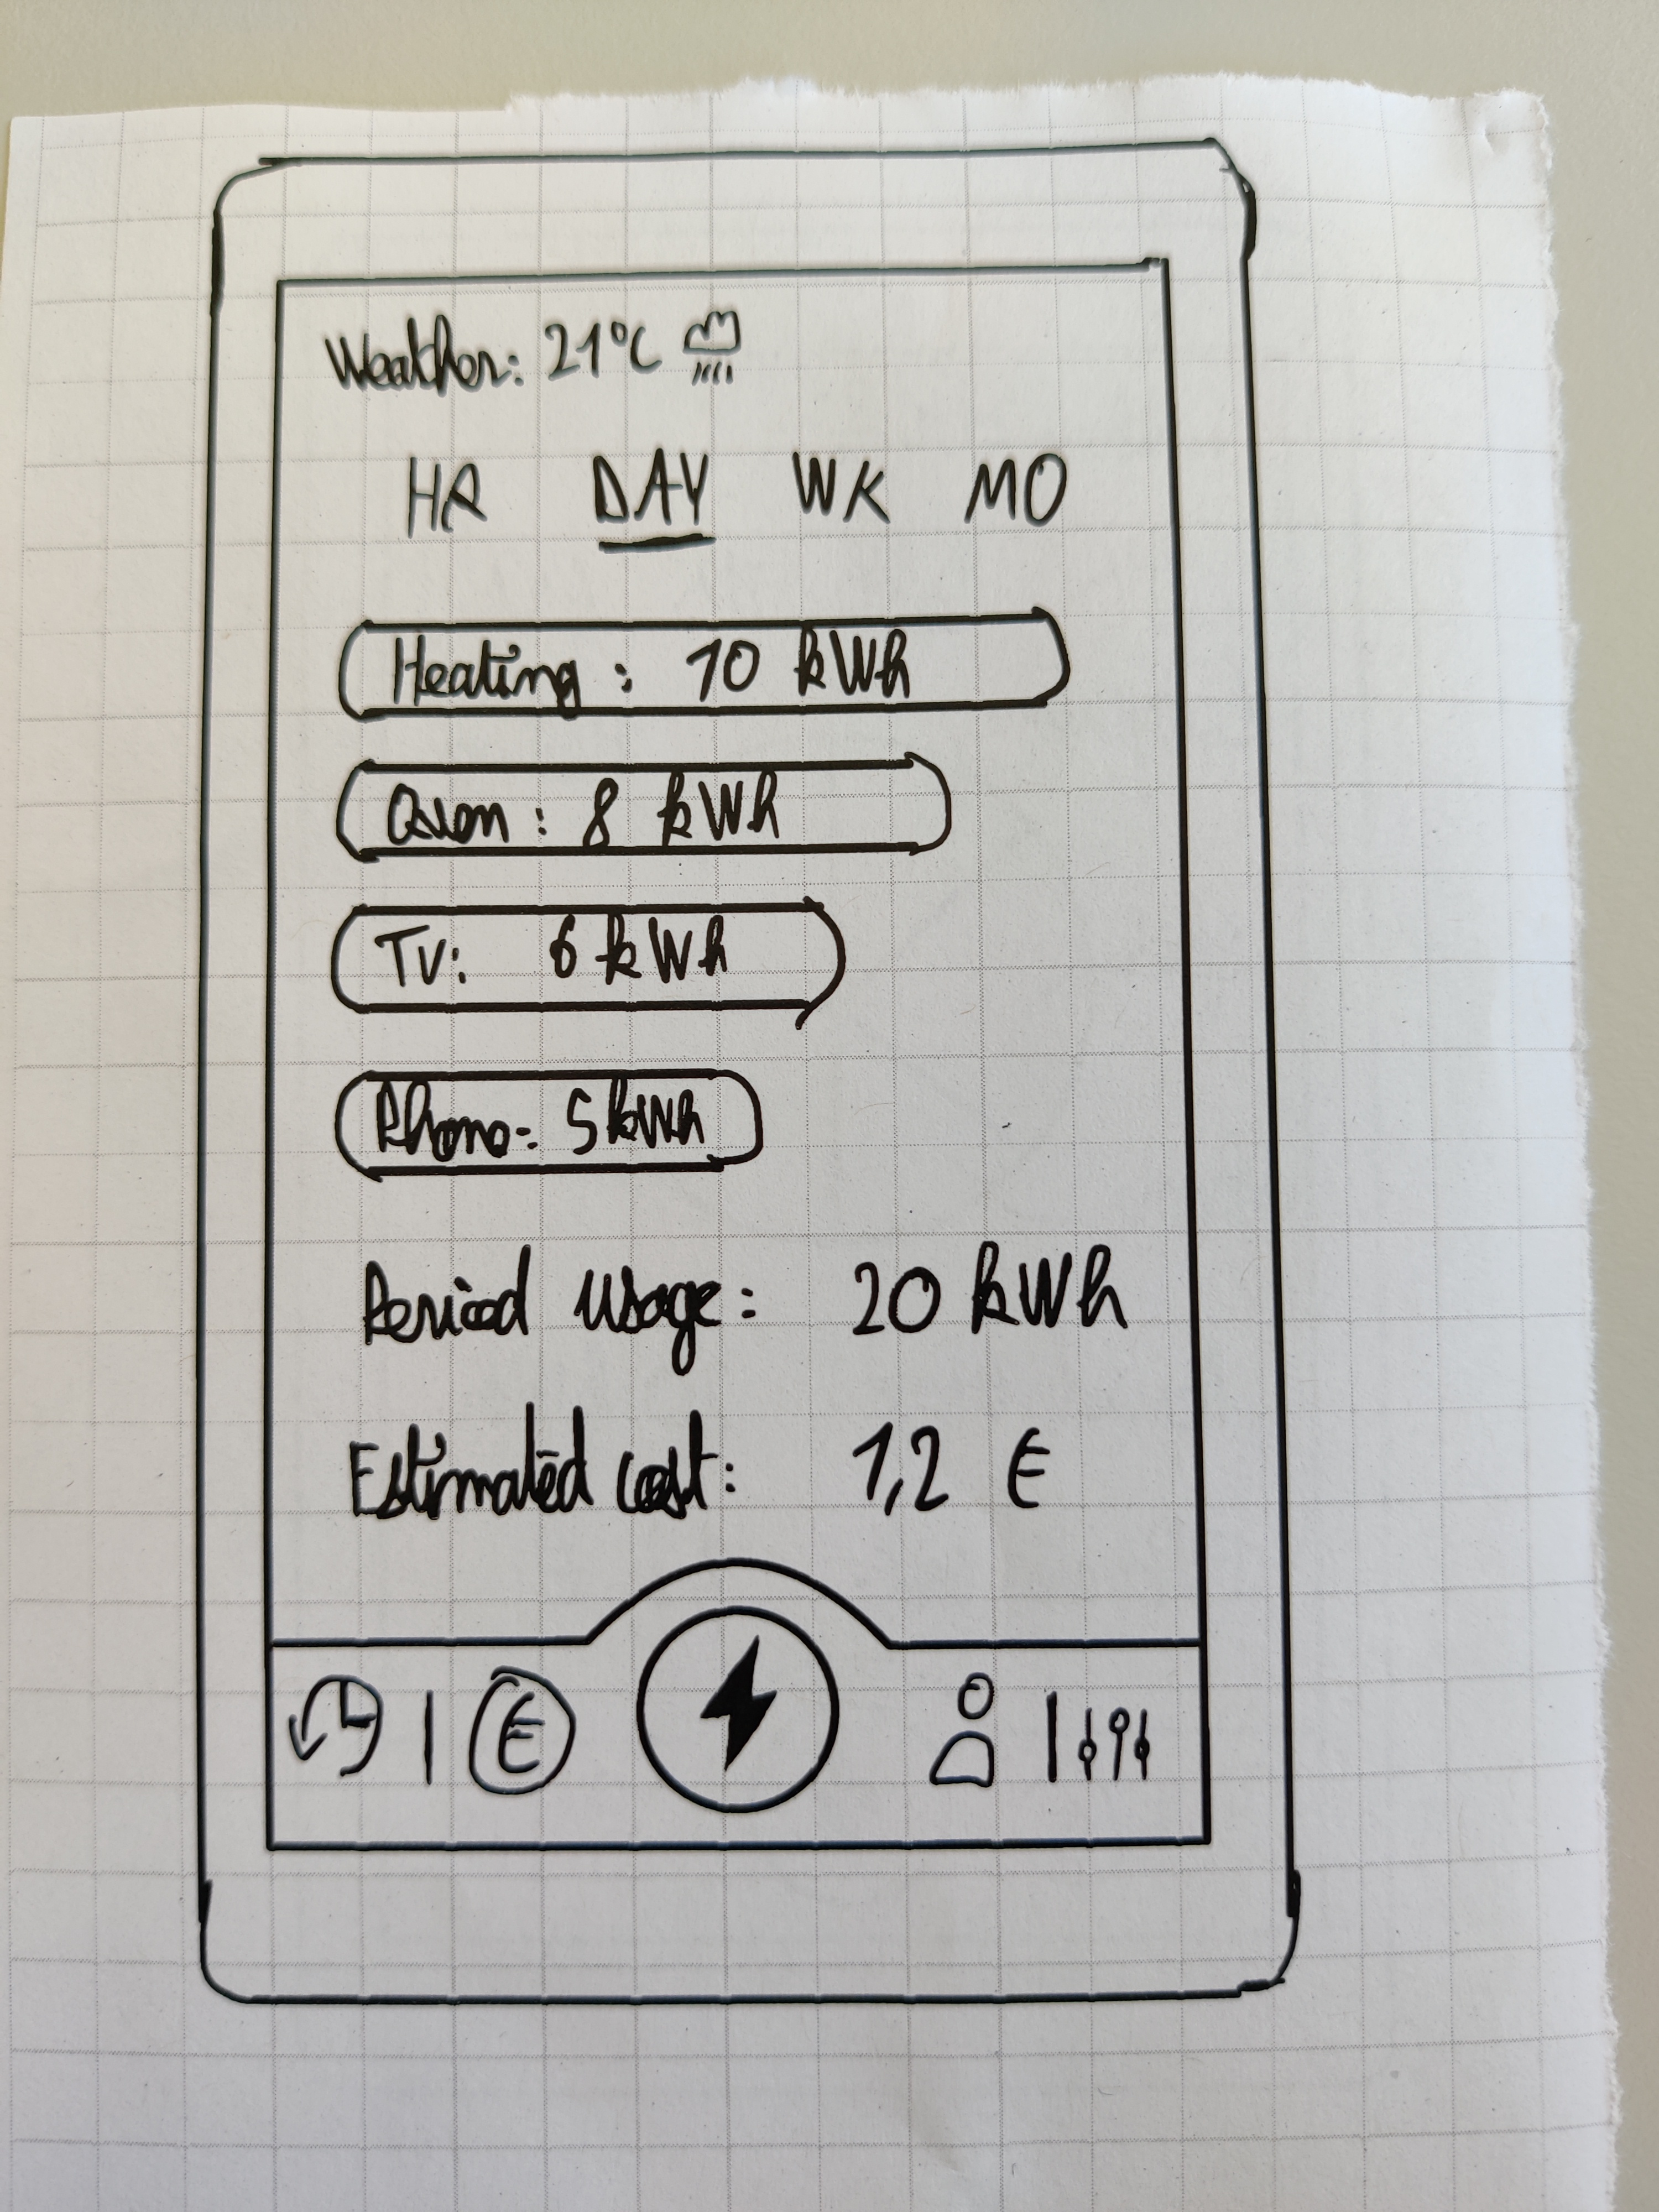 Weather: 21°C
HR DAY WK MO
Heating: 10 kWh
Oven: 8 kWh
TV: 6 kWh
Phone: 5 kWh
Period usage: 20 kWh
Estimated cost: 1,2 €
€